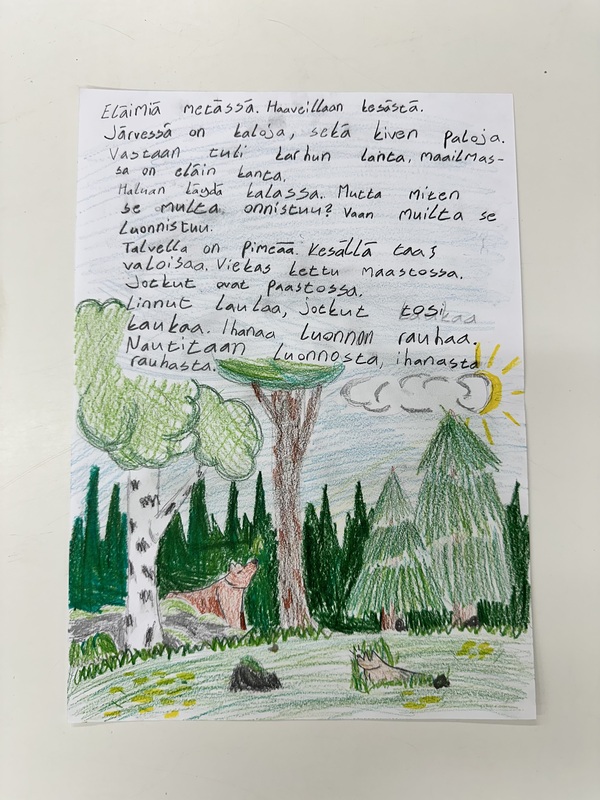 Eläimiä metässä. Haaveillaan kesästä.
Järvessä on kaloja, sekä kiven paloja.
Vastaan tuli karhun lanta, maailmas-
sa on eläin kanta.
Haluan käydä kalassa. Mutta miten
se multa onnistuu? Vaan muilta se
Luonnistuu.
Talvella on pimeää. Kesällä taas
valoisaa. Viekas kettu maastossa.
Jotkut ovat paastossa.
Linnut laulaa, jotkut tosi
kaukaa. Ihanaa luonnon rauhaa.
Nautitaan luonnosta, ihanasta
rauhasta.